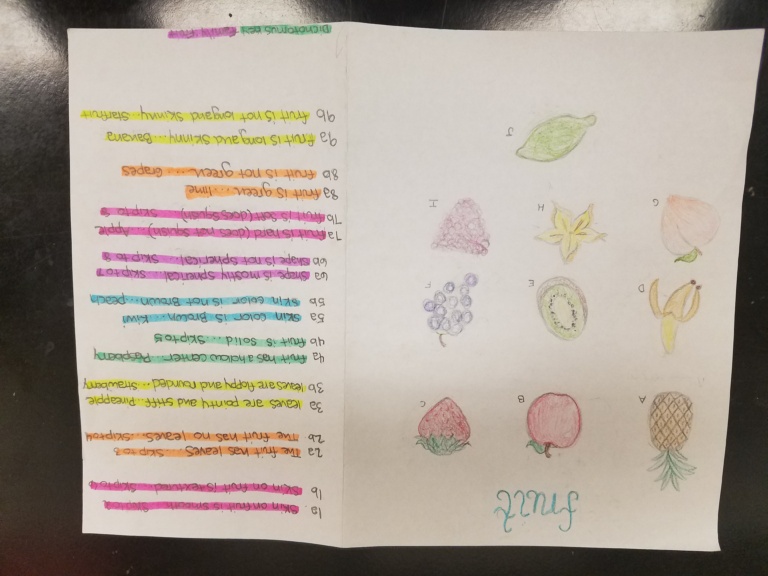 fruit
A
B
C
D
E
F
G
H
I
J
1a Skin on fruit is smooth Skip to
1b Skin on fruit is textured Skip to
2a The fruit has leaves Skip to 3
2b The fruit has no leaves. Skip to 4
3a leaves are pointy and stiff Pineapple
3b leaves are floppy and rounded ... Strawberry
4a fruit has a hollow center Raspberry
4b fruit is Solid Skip to 5
5a Skin color is Brown Kiwi
5b Skin color is not Brown ... peach
6a Shape is mostly spherical Skip to 7
6b Shape is not spherical. Skip to 9
7a fruit is hard (does not squish) Apple
7b fruit is soft (does squish) Skip to 8
8a fruit is green ... lime
8b fruit is not green ... Grapes
9a fruit is long and skinny ... Banana
9b fruit is not long and skinny Starfruit